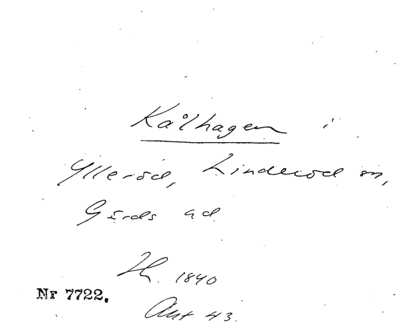 Kålhagen i
Ylleröd, Linderöd sn,
Gärds hd
Jh. 1840
Nr 7722.
Ant 43.